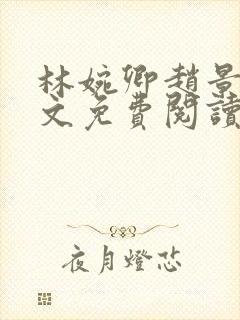 林婉卿趙景
文免費閱讀
夜月燈芯